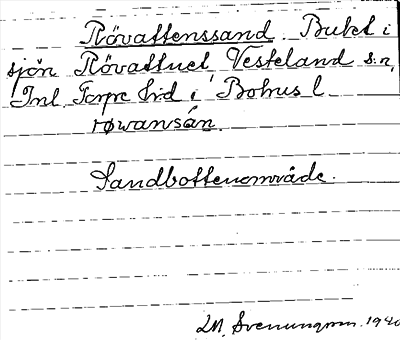 Rövattenssand. Bukt i
sjön Rövattnet Vesteland s:n,
Inl. Torpe hrd i Bohus l.
røwansán.
Sandbottenområde.
M. Svenungsson. 1920